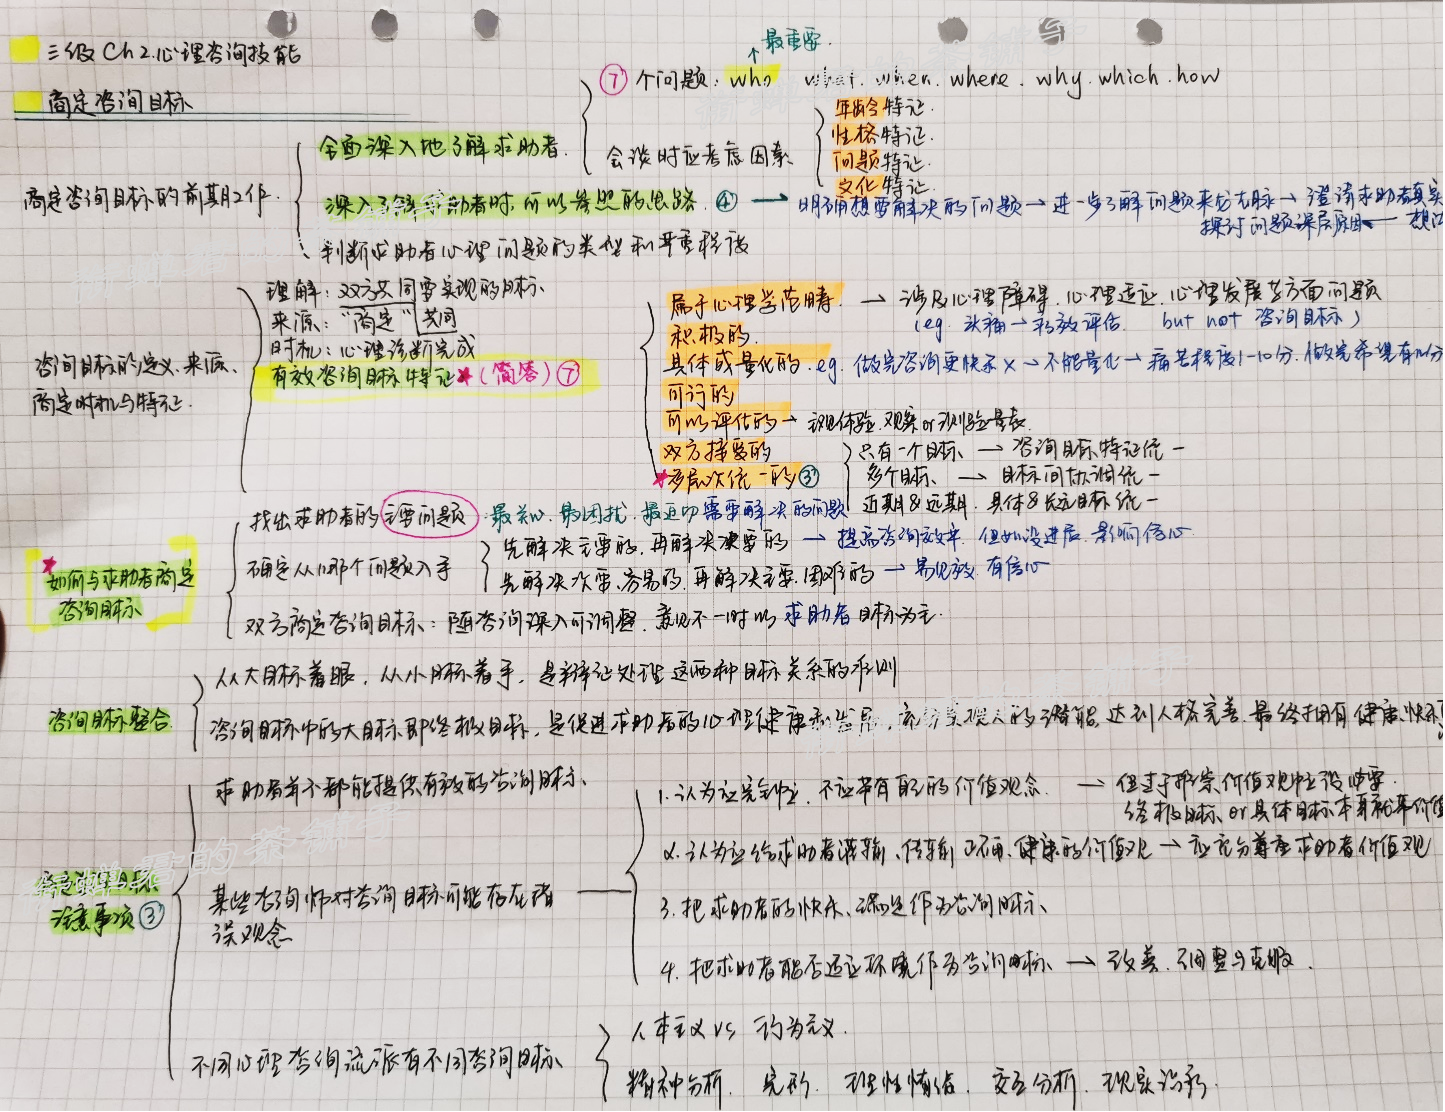 三级 Ch2.心理咨询技能
商定咨询目标
最重要.
⑦ 个问题: who what. when. where. why. which. how
全面深入地了解求助者.
会谈时应考虑因素
年龄特征.
性格特征.
问题特征.
文化特征.
商定咨询目标的前期工作.
深入了解求助者时,可以参照的思路. ④ → 明确想要解决的问题 → 进一步了解问题来龙去脉 → 澄清求助者真实
探讨问题深层原因 ← 想法
判断求助者心理问题的类型和严重程度
咨询目标的定义、来源、
商定时机与特征.
理解: 双方共同要实现的目标、
来源: "商定" 共同
时机: 心理诊断完成
有效咨询目标特征 (简答) ⑦
属于心理学范畴. → 涉及心理障碍.心理适应.心理发展等方面问题
(eg. 头痛 → 疗效评估. but not 咨询目标)
积极的.
具体或量化的. eg. 做完咨询要快乐 × → 不能量化 → 痛苦程度1-10分.做完希望有
可行的
可以评估的 → 主观体验.观察or测验量表.
双方接受的
多层次统一的 ③
只有一个目标、 → 咨询目标特征统一
多个目标、 → 目标间协调统一
近期&远期. 具体&长远目标统一
如何与求助者商定
咨询目标
找出求助者的主要问题. 最关心.最困扰.最迫切需要解决的问题
确定从哪个问题入手
先解决主要的,再解决次要的 → 提高咨询效率. 但如没进展.影响信心
先解决次要、容易的,再解决主要、困难的 → 易见效.有信心
双方商定咨询目标: 随咨询深入可调整. 意见不一时以求助者目标为主.
咨询目标整合.
从大目标着眼, 从小目标着手, 是辩证处理这两种目标关系的准则
咨询目标中的大目标即终极目标, 是促进求助者的心理健康和发展, 充分实现人的潜能.达到人格完善.最终拥有健康、快乐
商定咨询目标
注意事项 ③
求助者并不都能提供有效的咨询目标、
某些咨询师对咨询目标可能存在错
误观念
1. 认为应完全中立.不应带有自己的价值观念. → 但过于形容价值观中立没必要.
终极目标、or具体目标本身就带价值
2. 认为应给求助者灌输、传输正确、健康的价值观 → 应充分尊重求助者价值观
3. 把求助者的快乐、满足作为咨询目标、
4. 把求助者能否适应环境作为咨询目标、 → 改善.调整与克服.
不同心理咨询流派有不同咨询目标、
人本主义 vs 行为主义.
精神分析. 完形. 理性情绪. 交互分析. 现实治疗.